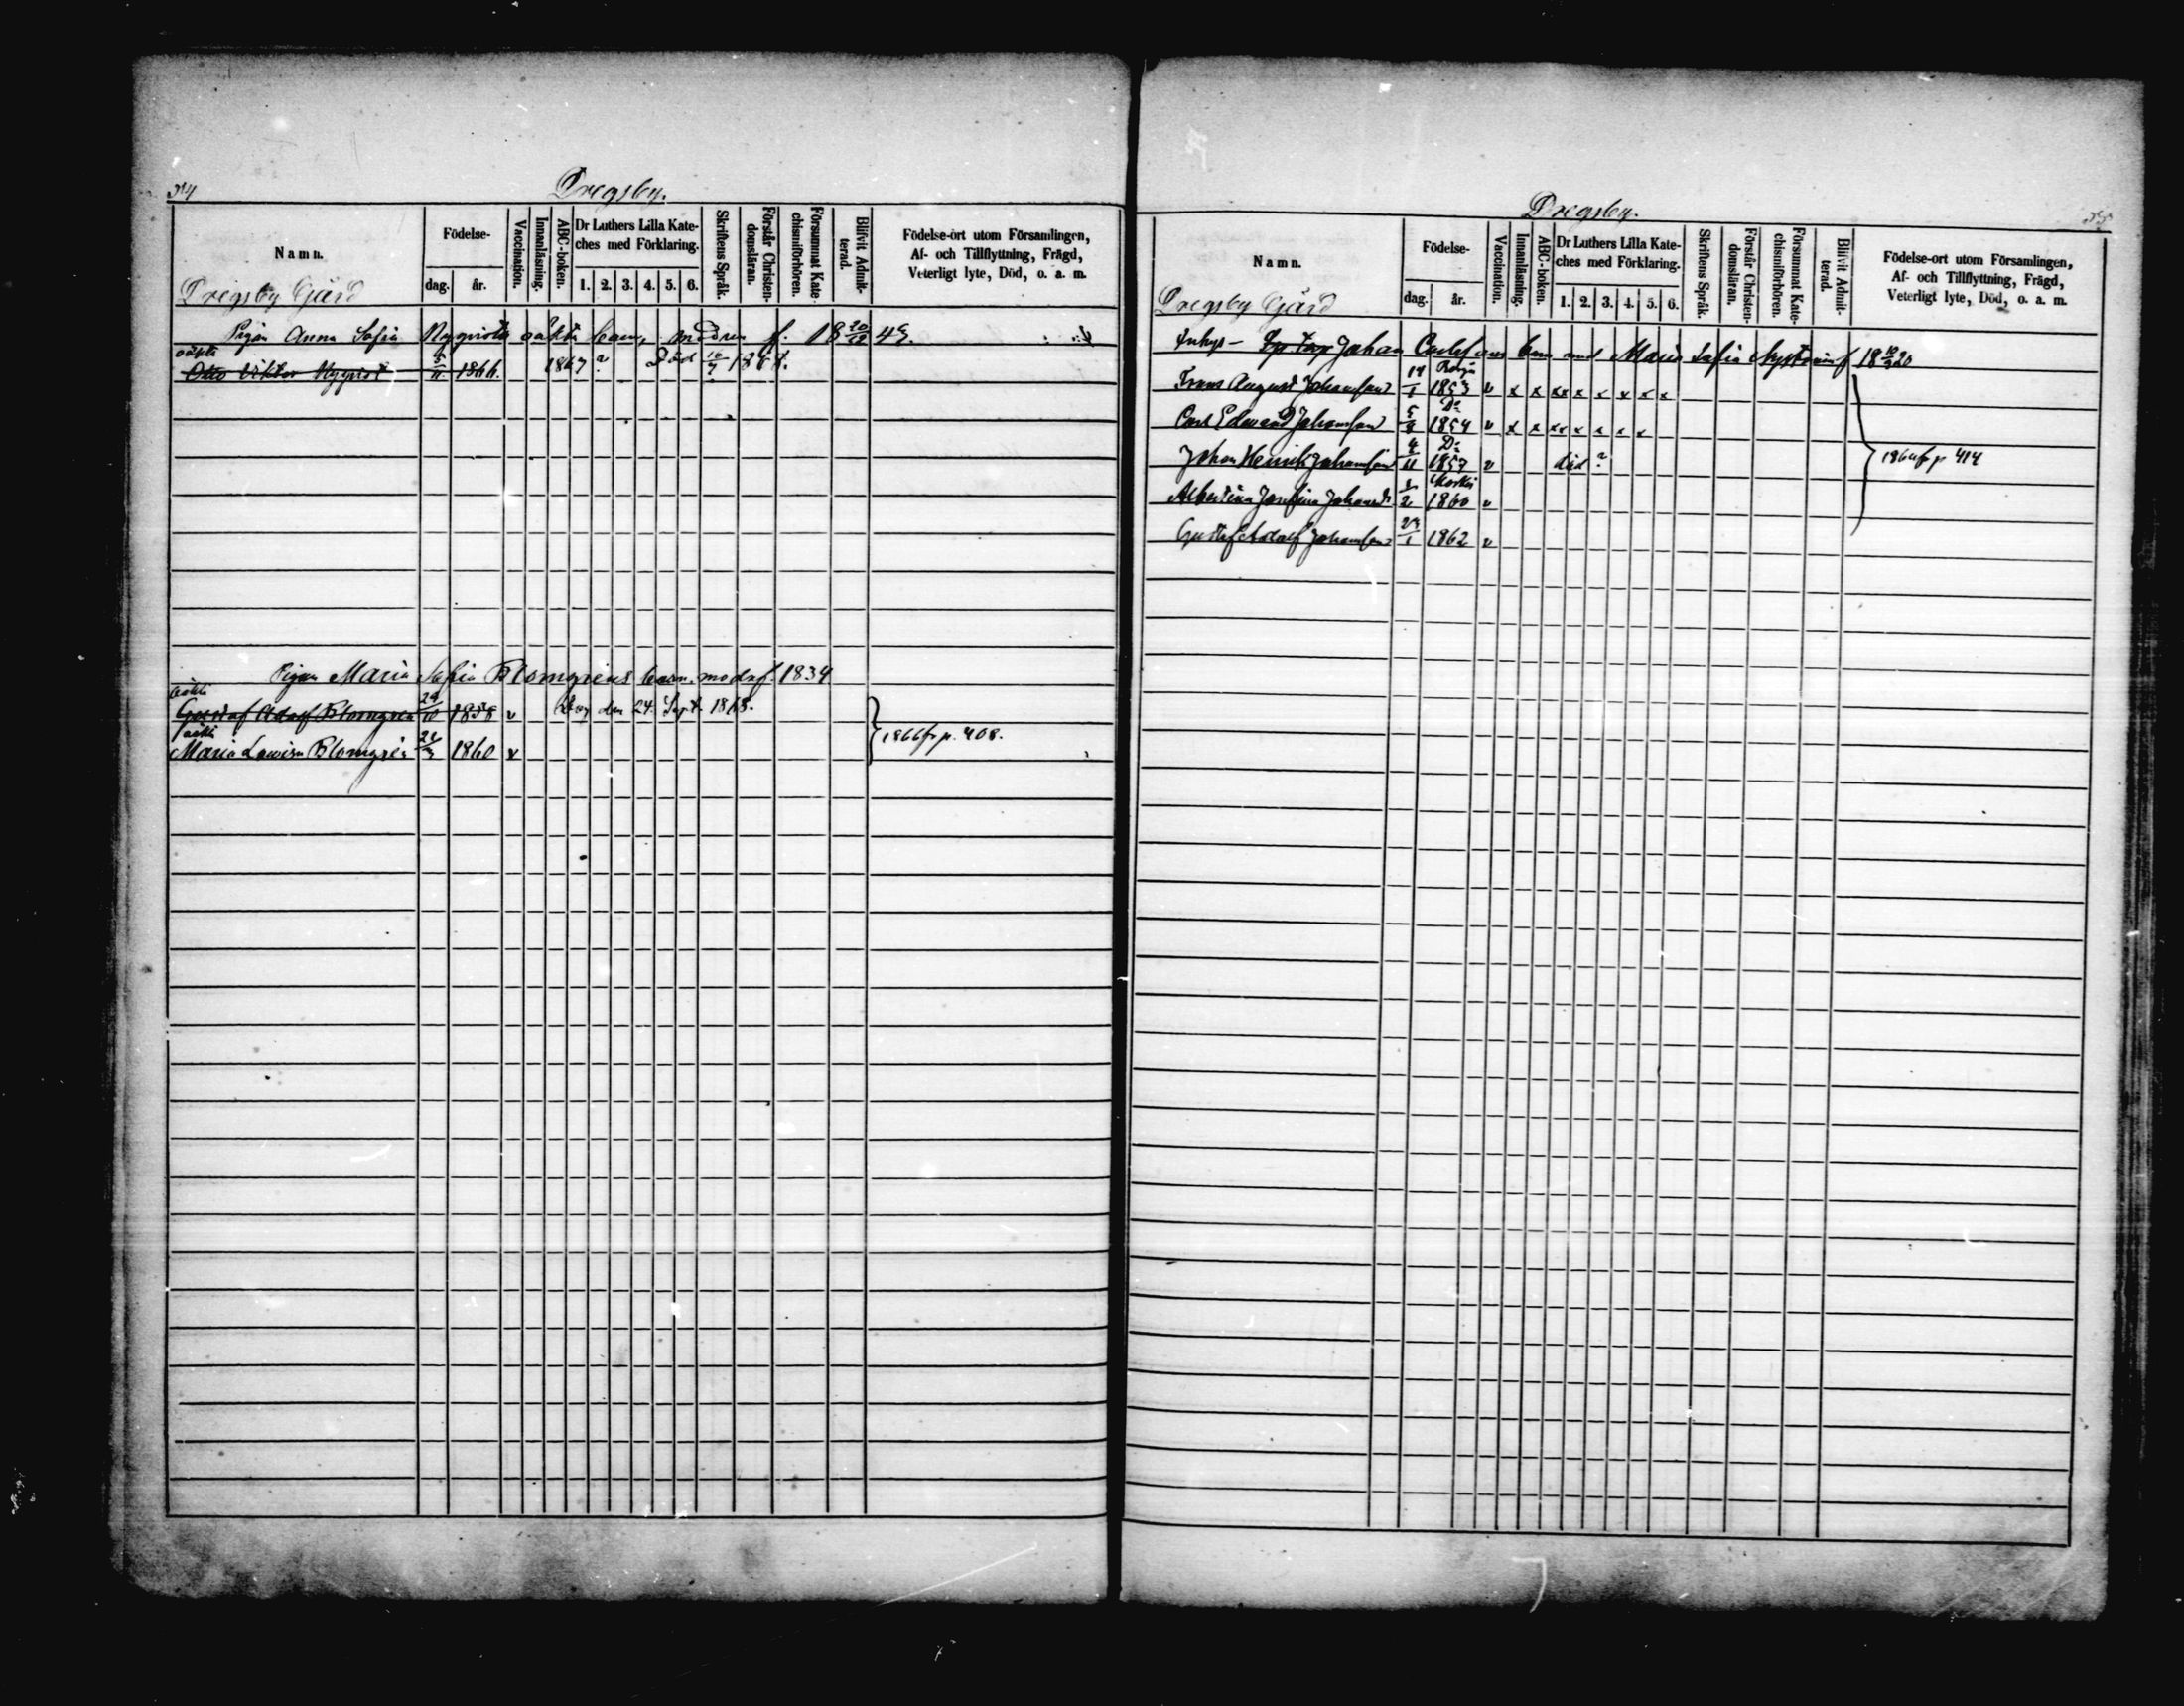 34
Dregsby.
Namn.
Födelse-
dag.
år.
Vaccination.
Innanläsning.
ABC-boken.
Dr Luthers Lilla Kate-
ches med Förklaring.
1. 2. 3. 4. 5. 6.
Skriftens Språk.
Förstår Christen-
domsläran.
Försummat Kate-
chismiförhören.
Blifvit Admit-
terad.
Födelse-ort utom Församlingen,
Af- och Tillflyttning, Frägd,
Veterligt lyte, Död, o. a. m.
Dregsby Gård
Pigan Anna Sofia Nyqvists oäkta barn, modren f. 18 20/12 49.
oäkta
Otto Viktor Nyqvist 5/11 1866. 1867 Död 1868.
Pigan Maria Sofia Blomgrens barn, mod. f. 1834
oäkta
Gustaf Adolf Blomgren 29/10 1858 v Dog den 24. Sept. 1868.
oäkta
Maria Lovisa Blomgrén 1860 v
1866 fr p. 408.
Dregsby.
35
Namn.
Födelse-
dag.
år.
Vaccination.
Innanläsning.
ABC-boken.
Dr Luthers Lilla Kate-
ches med Förklaring.
1. 2. 3. 4. 5. 6.
Skriftens Språk.
Förstår Christen-
domsläran.
Försummat Kate-
chismiförhören.
Blifvit Admit-
terad.
Födelse-ort utom Församlingen,
Af- och Tillflyttning, Frägd,
Veterligt lyte, Död, o. a. m.
Dregsby Gård
Inhys- Johan barn med Maria Sofia Nyström f 18 20
Frans August Johansson 1853 v x x xx x x x x x
Do
Carl Edvard Johansson 1854 v x x xx x x x x
Do
Johan Henrik Johansson 4/11 1857 v död?
Albertina Josefina Johansd. 1860 v
Gustaf Adolf Johansson 1862 v
fr p 414